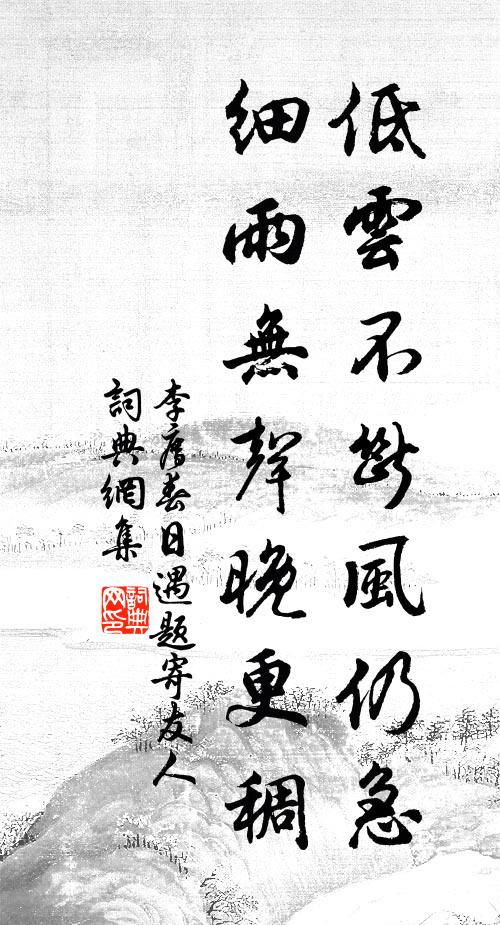 低雲不斷風仍急
細雨無聲晚更稠
李春日遇題寄友人
詞典網集
詞典
网印